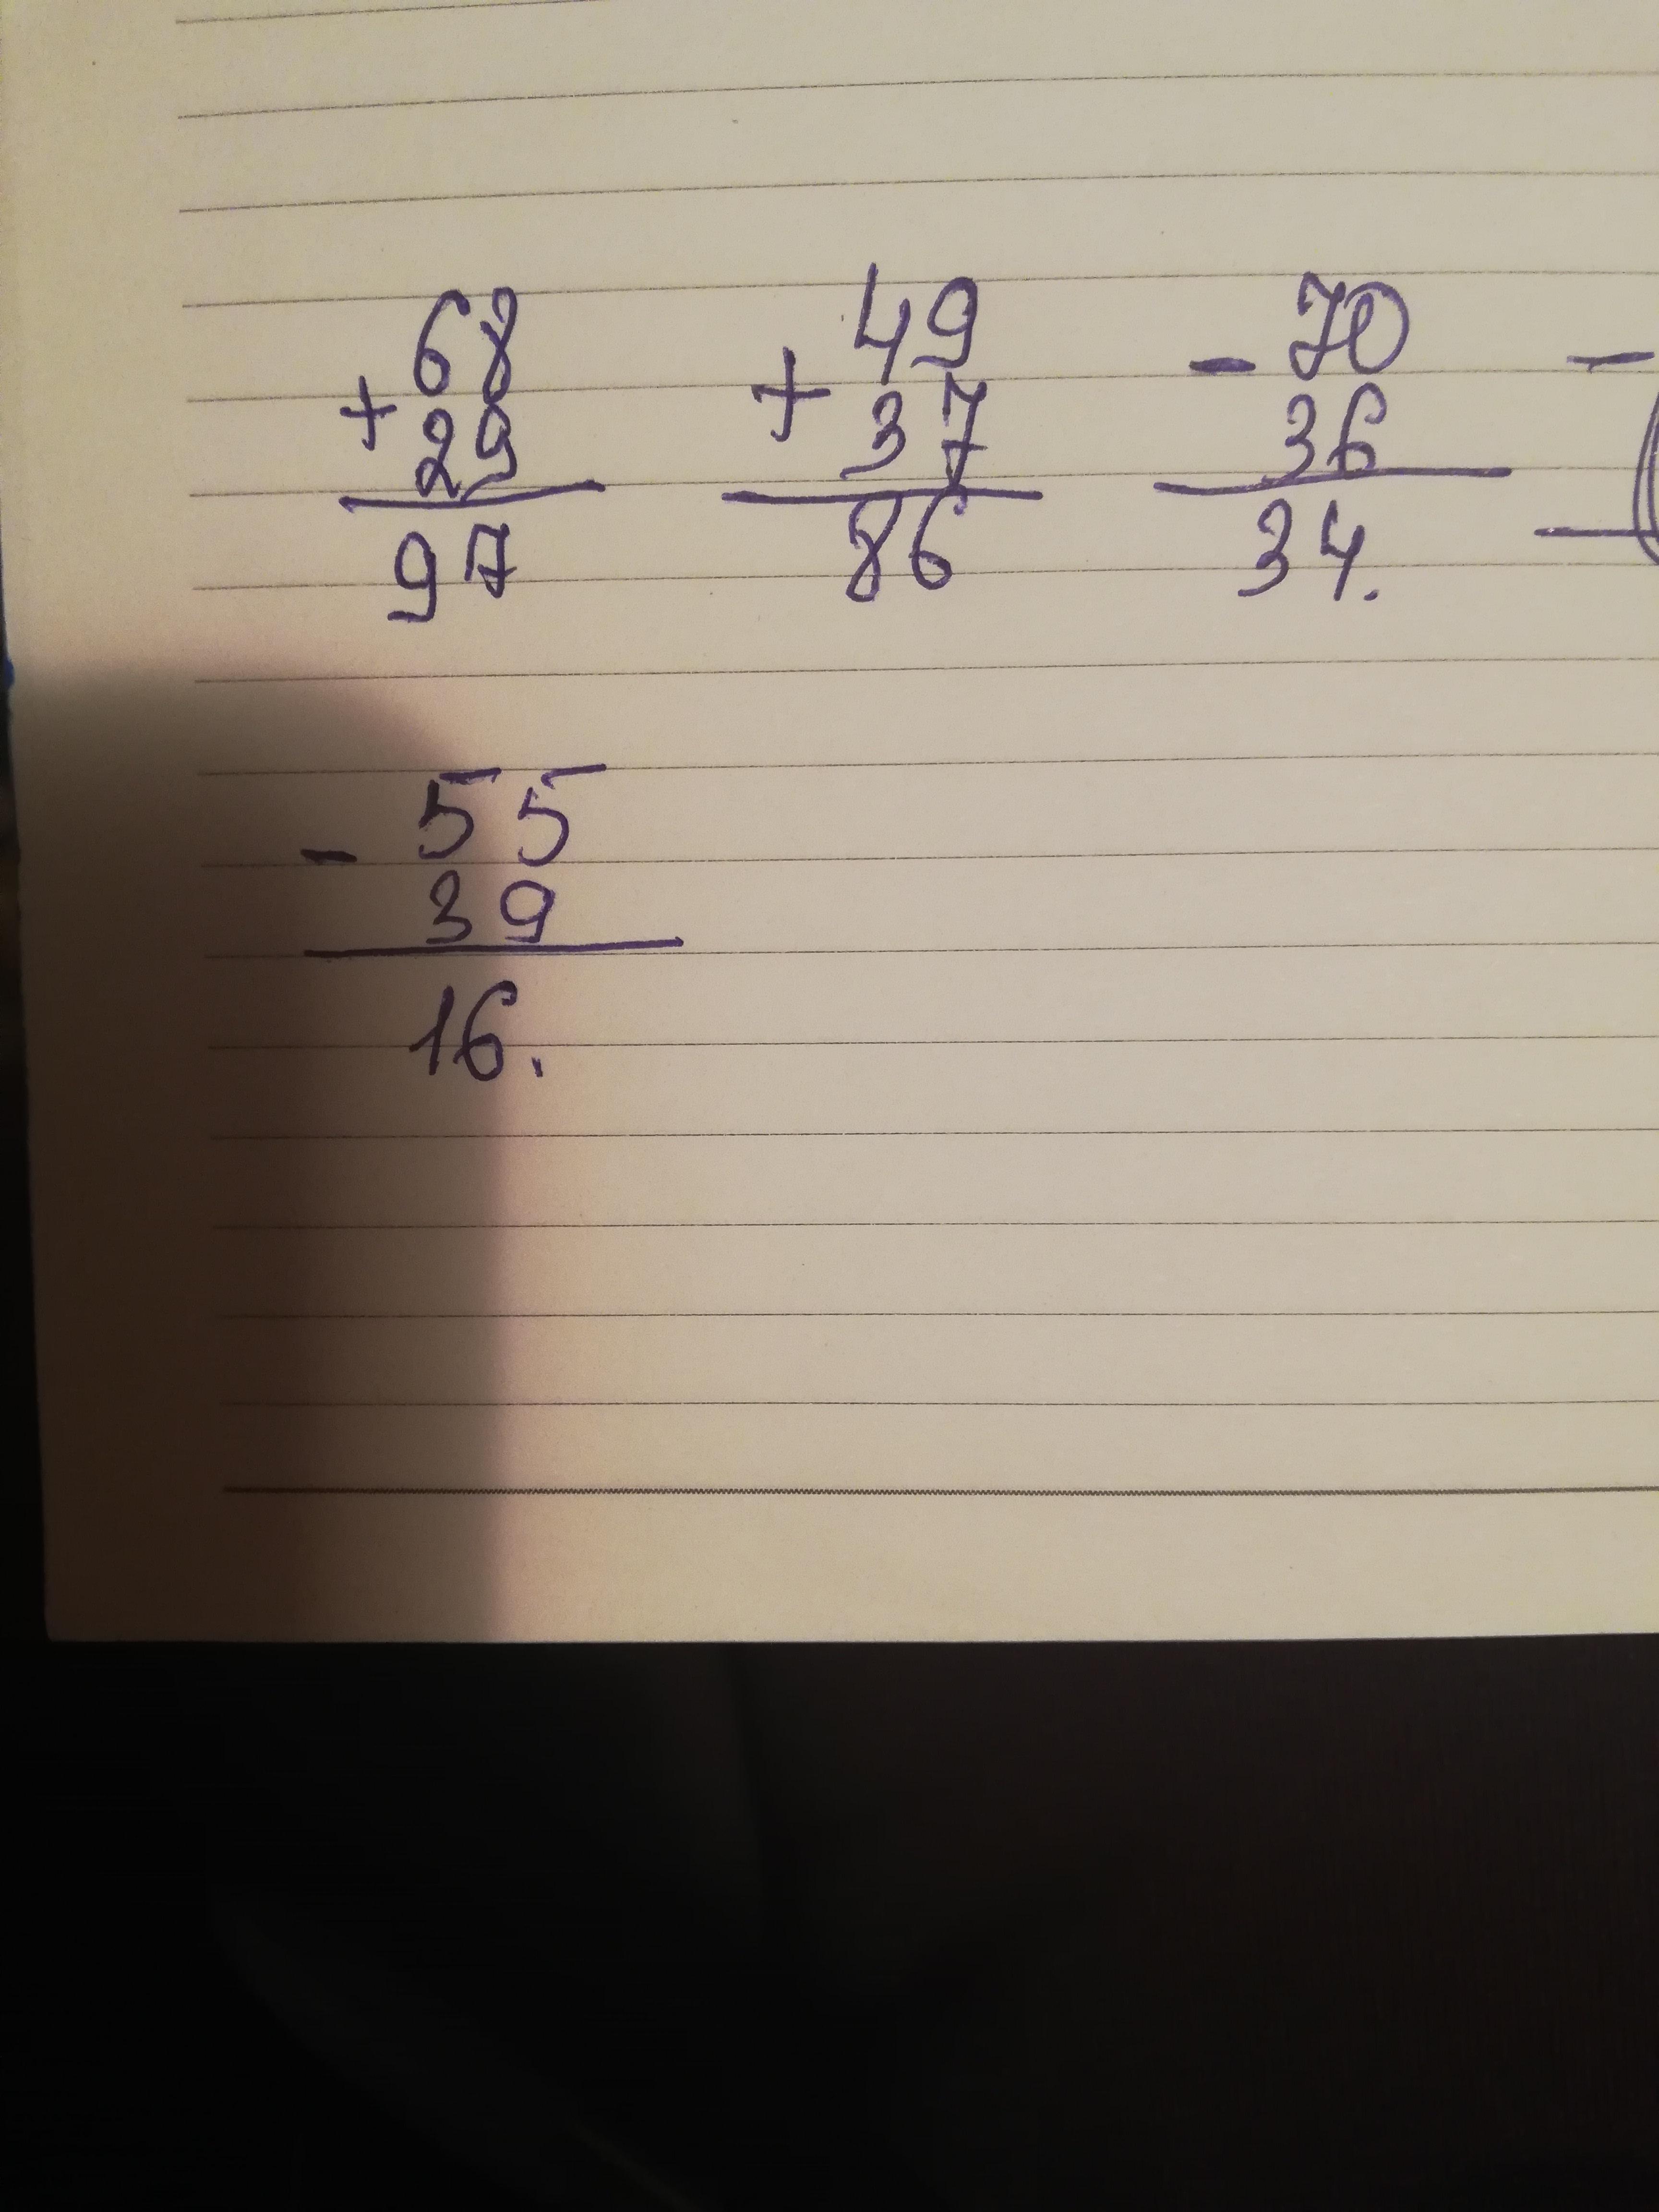 68 49 70
+ + - -
29 37 36
97 86 34.
55
-
39
16.